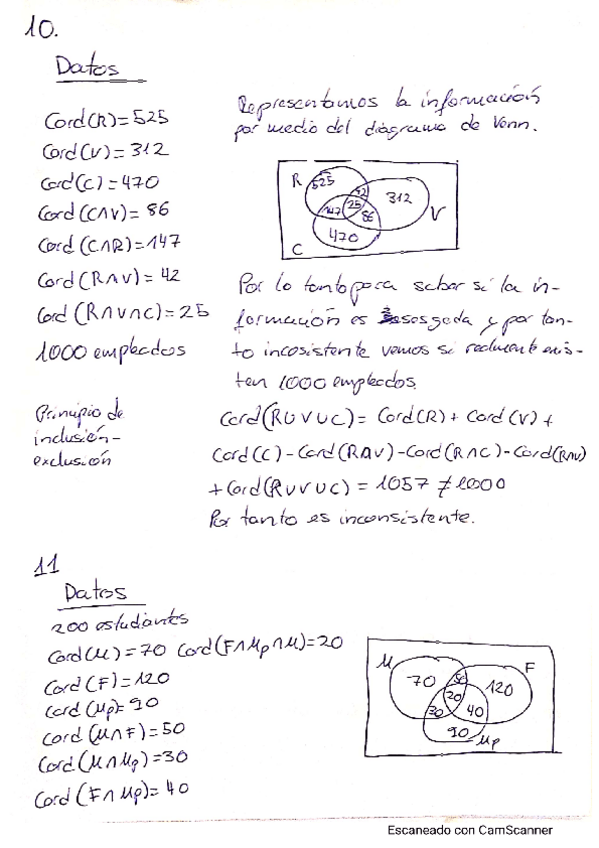 10.
Datos
Cord(R)=525
Cord(V)=312
Cord(C)=470
Cord(C∩V)=86
Cord(C∩R)=147
Cord(R∩V)=42
Cord(R∩V∩C)=25
1000 empleados
Representamos la información
por medio del diagrama de Venn.
R 525 42 312 V
147 25 86
C 470
Por lo tanto para saber si la in-
formación es sesgada y por tan-
to incosistente vemos si realmente exis-
ten 1000 empleados
Principio de
inclusión-
exclusión
Cord(RUVUC)= Cord(R)+ Cord(V)+
Cord(C)-Cord(R∩V)-Cord(R∩C)-Cord(R∩V)
+Cord(RUVUC)=1057≠1000
Por tanto es inconsistente.
11
Datos
200 estudiantes
Cord(M)=70 Cord(F∩Mp∩M)=20
Cord(F)=120
Cord(Mp)=90
Cord(M∩F)=50
Cord(M∩Mp)=30
Cord(F∩Mp)=40
M 70 50 120 F
20
30 40
90 Mp
Escaneado con CamScanner